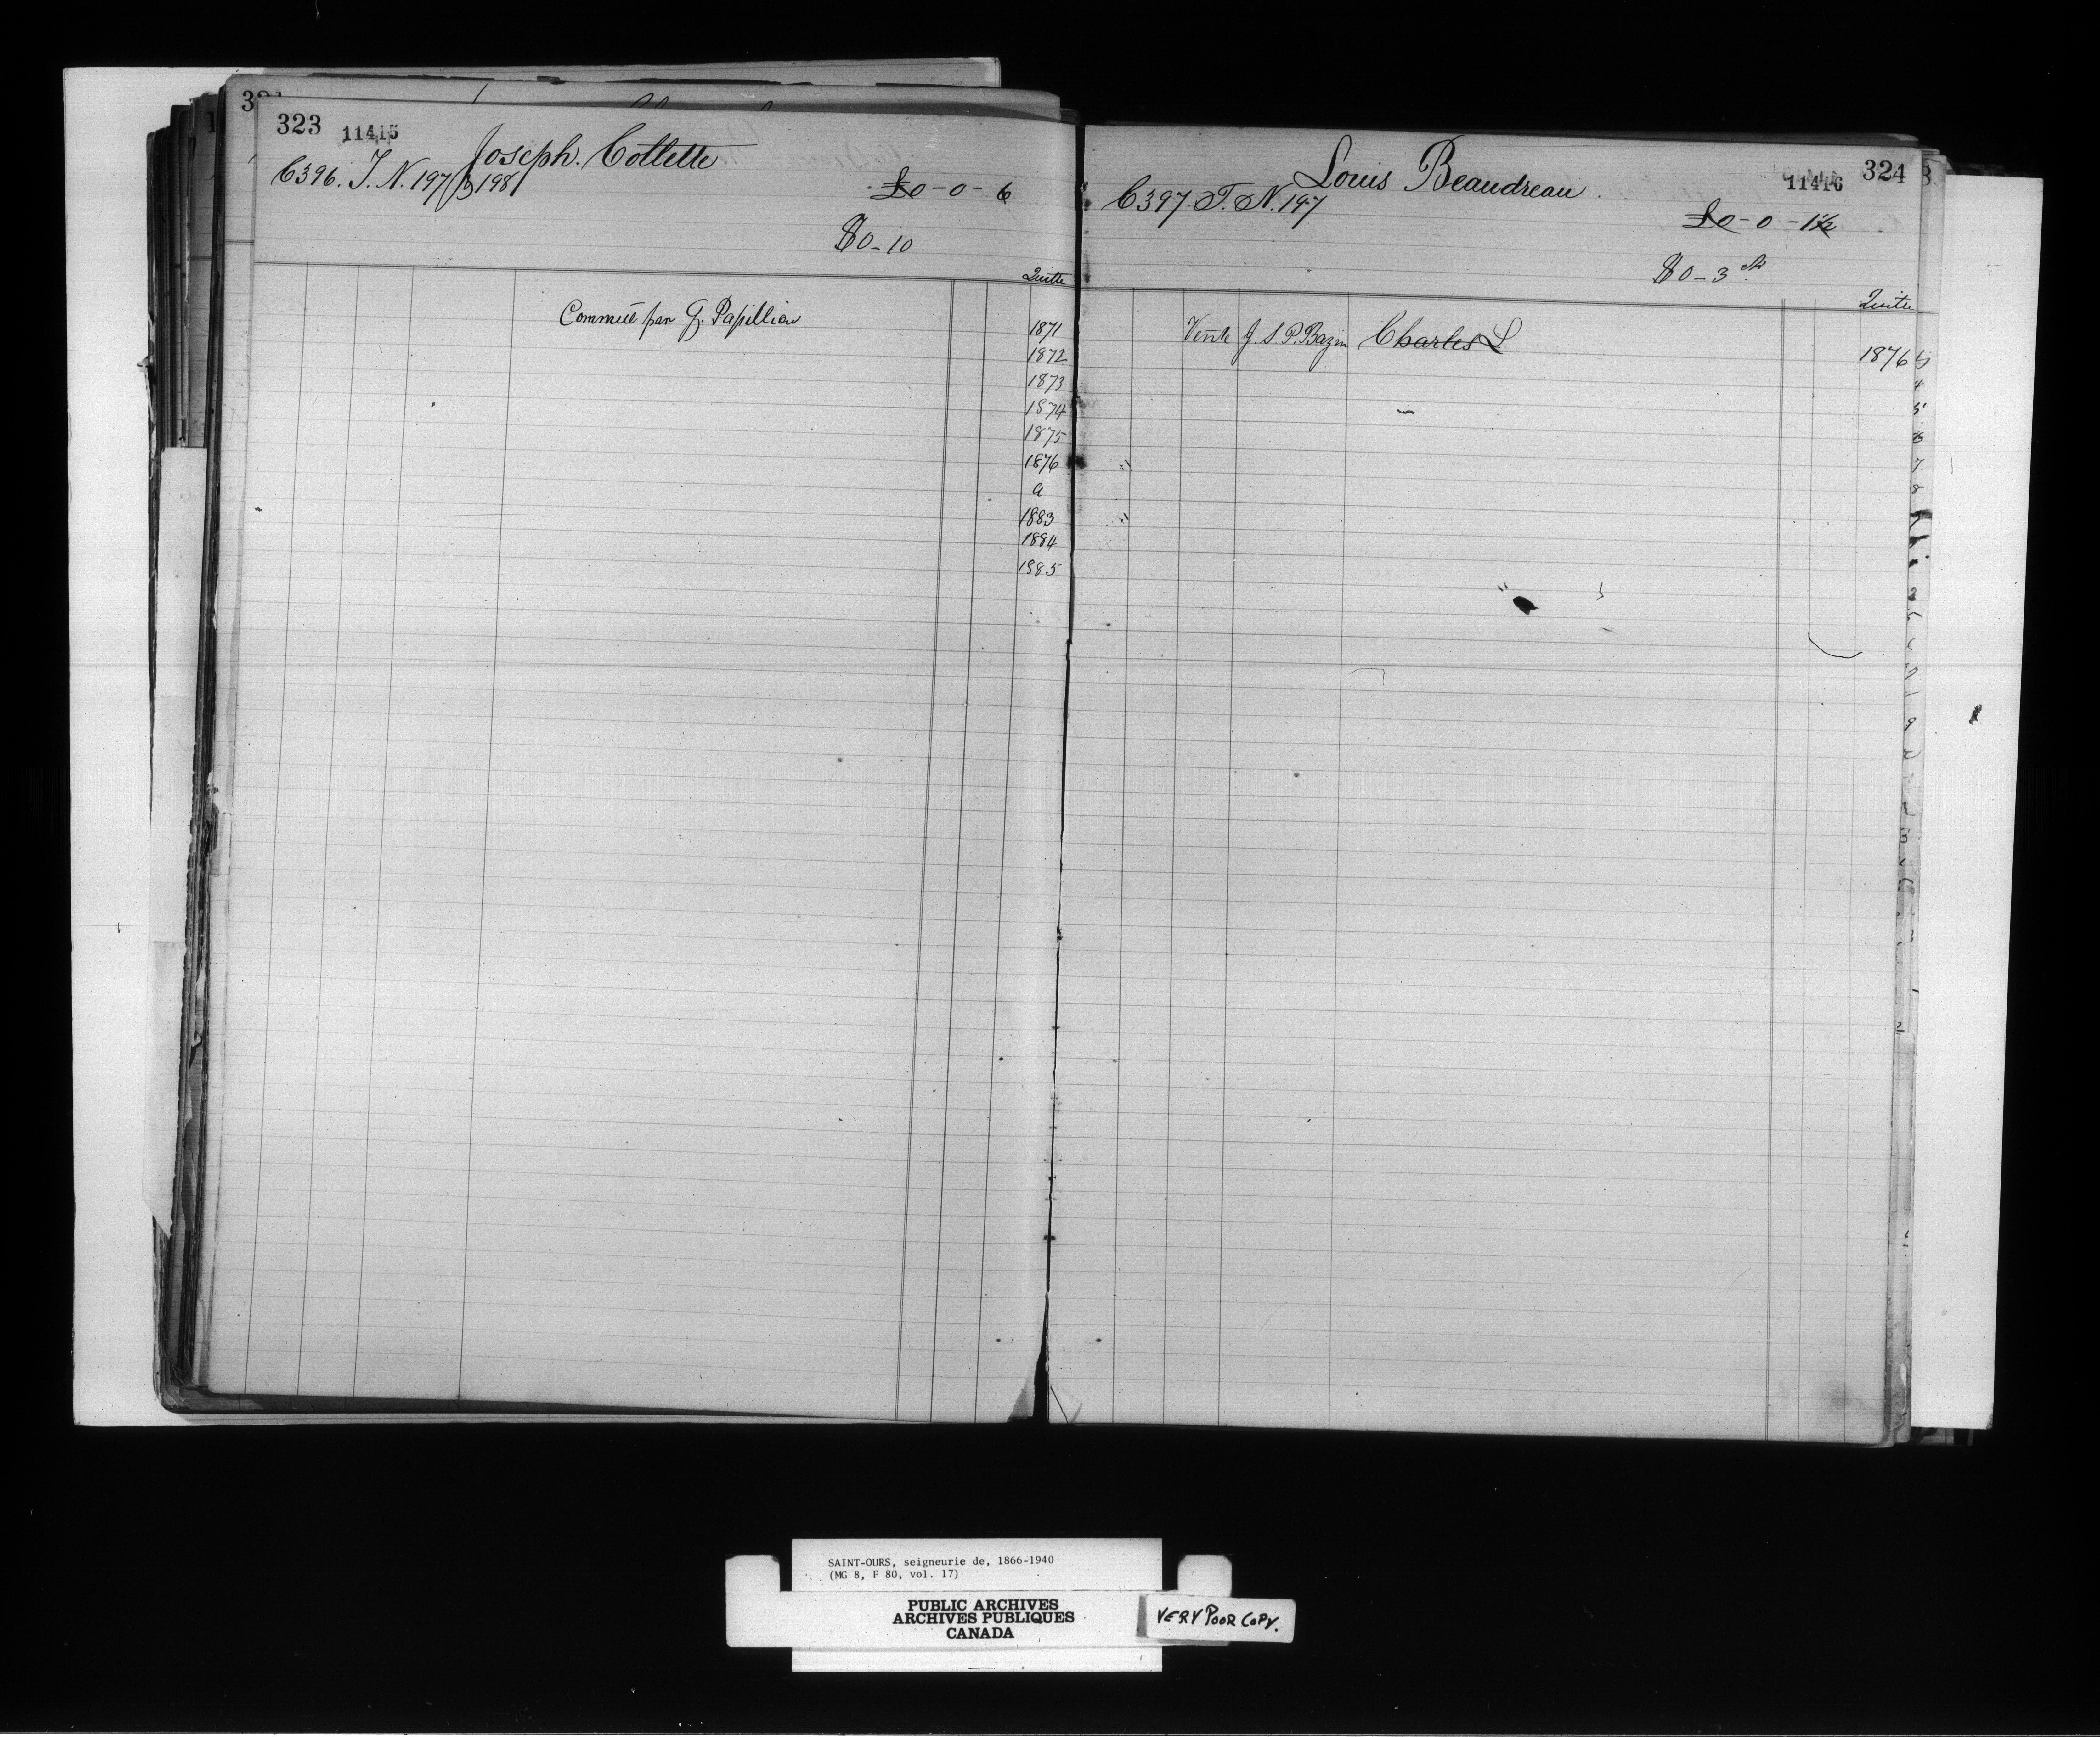 323 11415
Joseph. Collette
C396. T. N. 197 p 198
£0-0-6
$0-10
Quitte
Commué par G. Papillion
1871
1872
1873
1874
1875
1876
a
1883
1884
1885
11416 324
Louis Beaudreau.
C397. T. N. 197
£0-0-1½
$0-3 cts
Quitte
Vente J. S. P. Bazin Charles L
1876
SAINT-OURS, seigneurie de, 1866-1940
(MG 8, F 80, vol. 17)
PUBLIC ARCHIVES
ARCHIVES PUBLIQUES
CANADA
VERY POOR COPY.